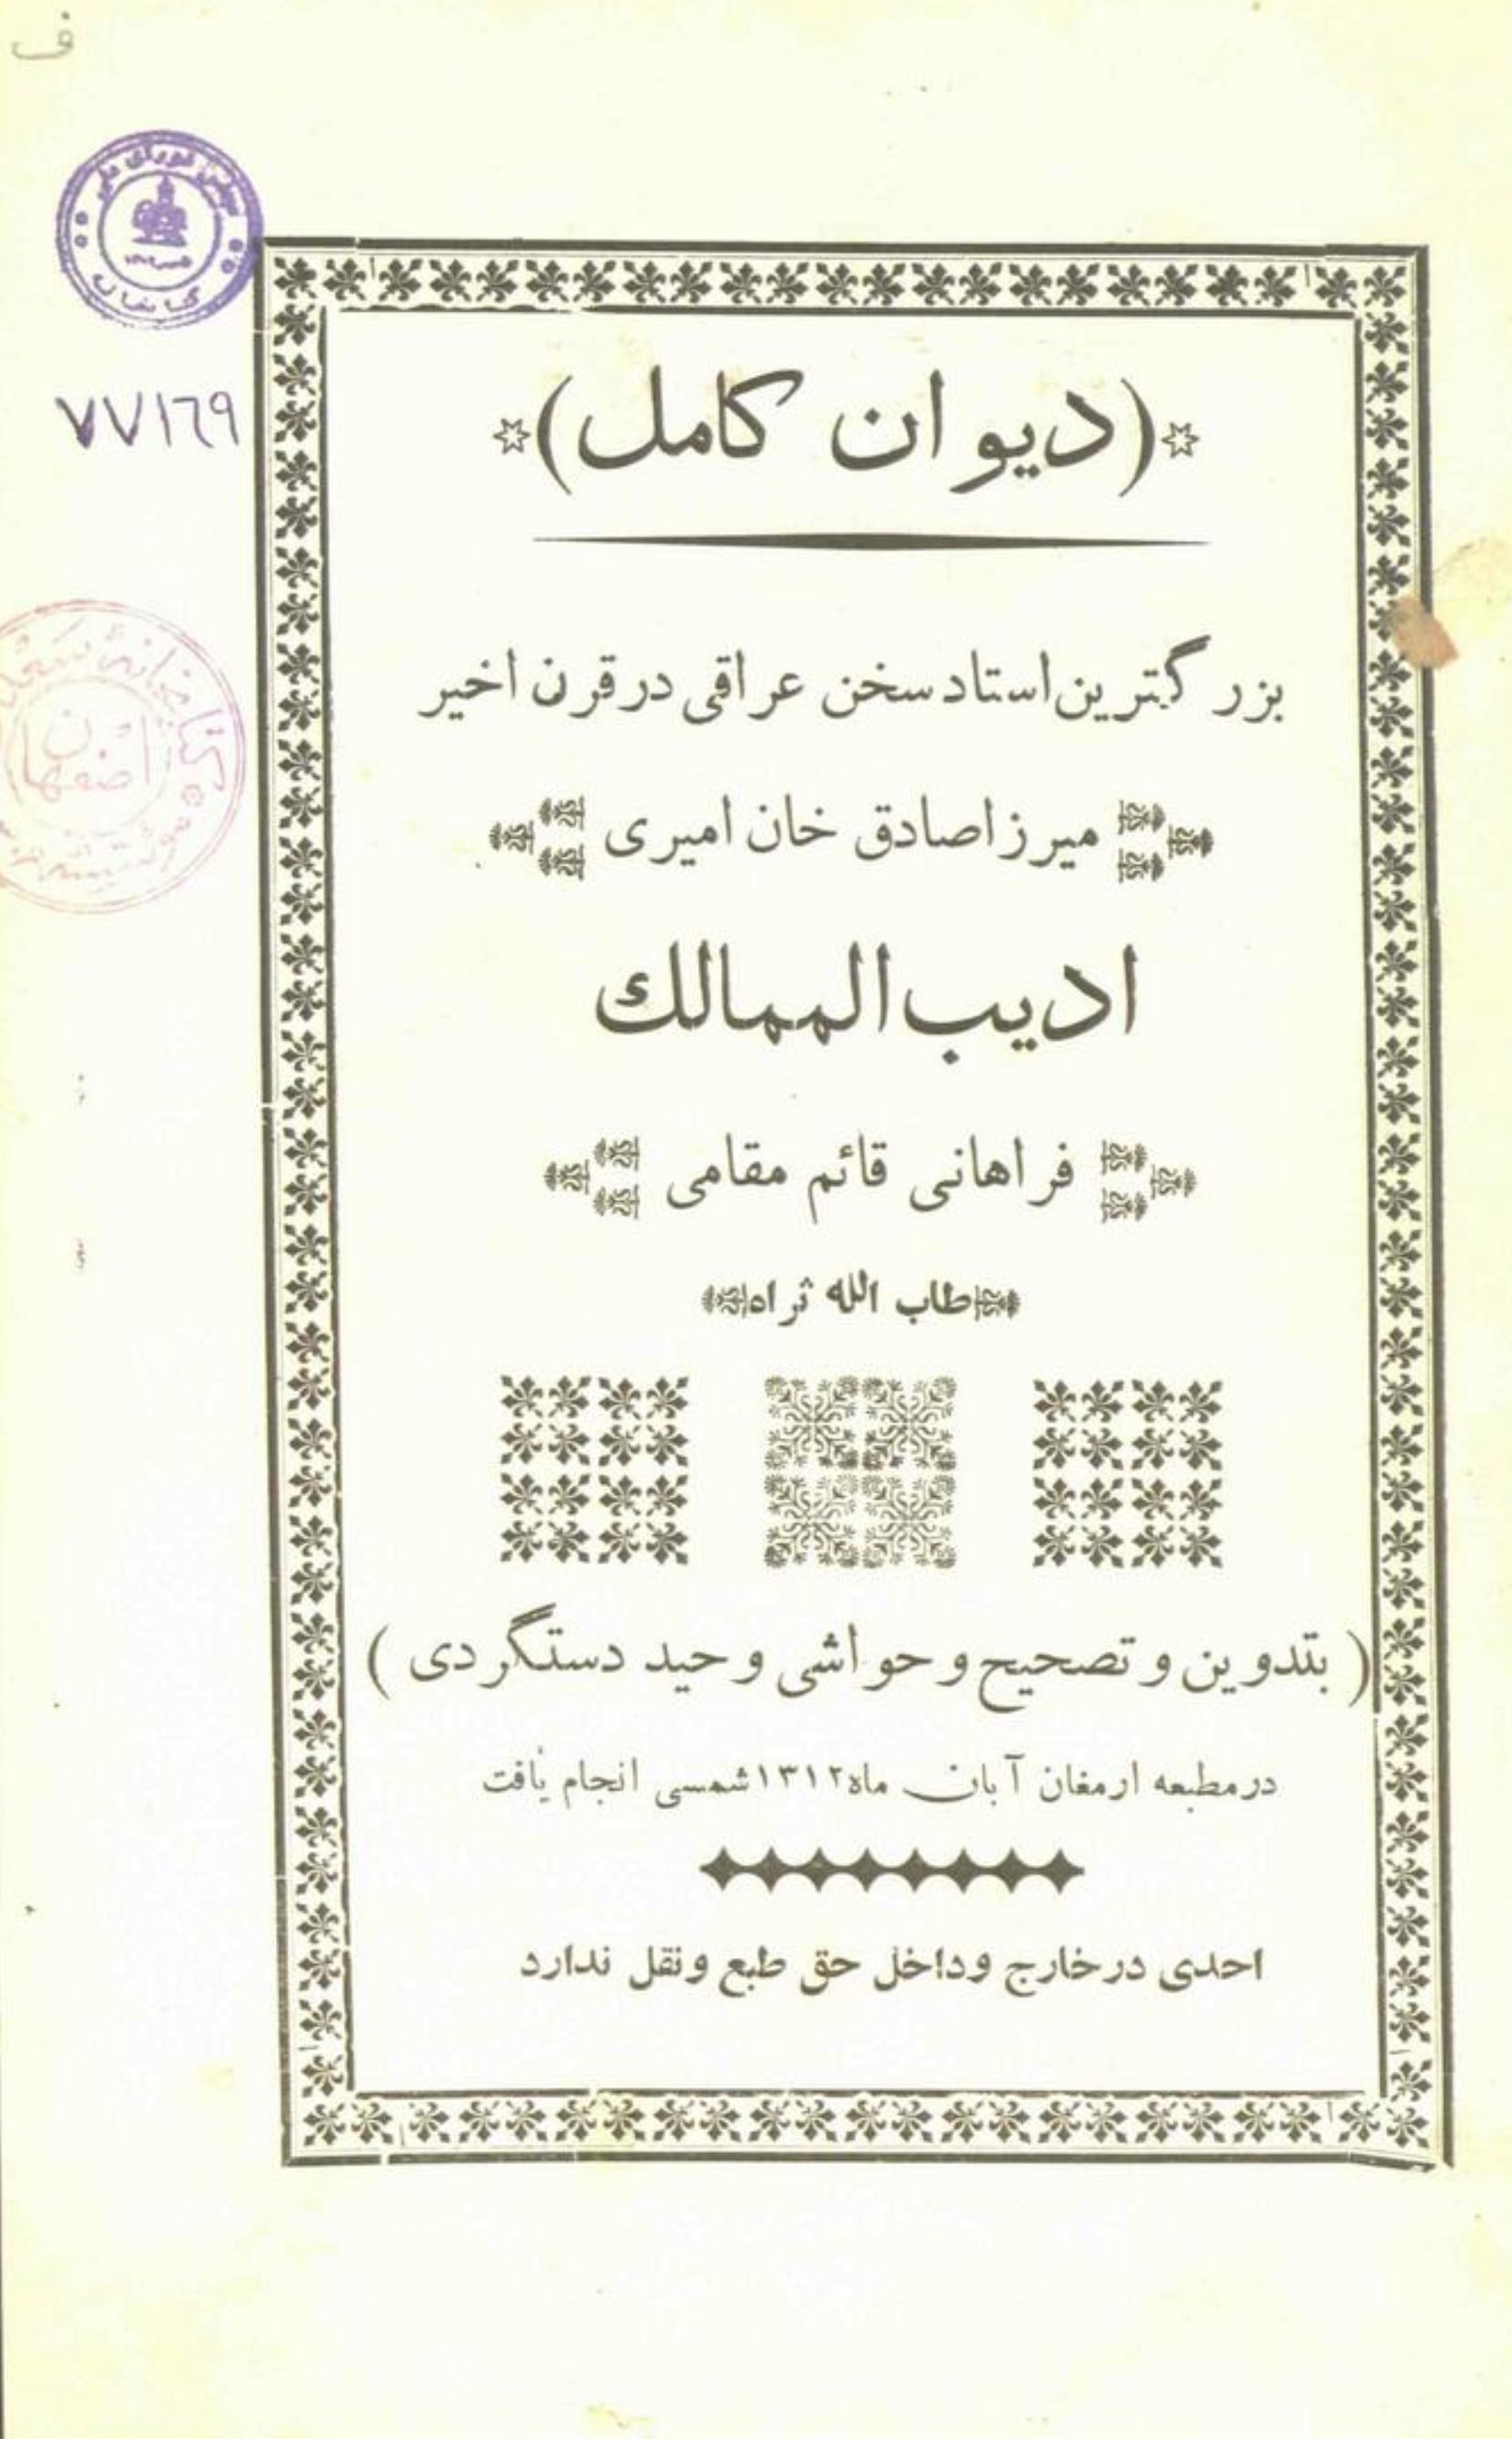 ف
مجلس شورای ملی
کتابخانه
۷۷۱۶۹
(دیوان کامل)
بزرگترین استاد سخن عراقی در قرن اخیر
میرزا صادق خان امیری
ادیب الممالک
فراهانی قائم مقامی
طاب الله ثراه
کتابخانه
اصفهان
( بتدوین و تصحیح و حواشی وحید دستگردی )
در مطبعه ارمغان آبان ماه ۱۳۱۲ شمسی انجام یافت
احدی در خارج و داخل حق طبع و نقل ندارد